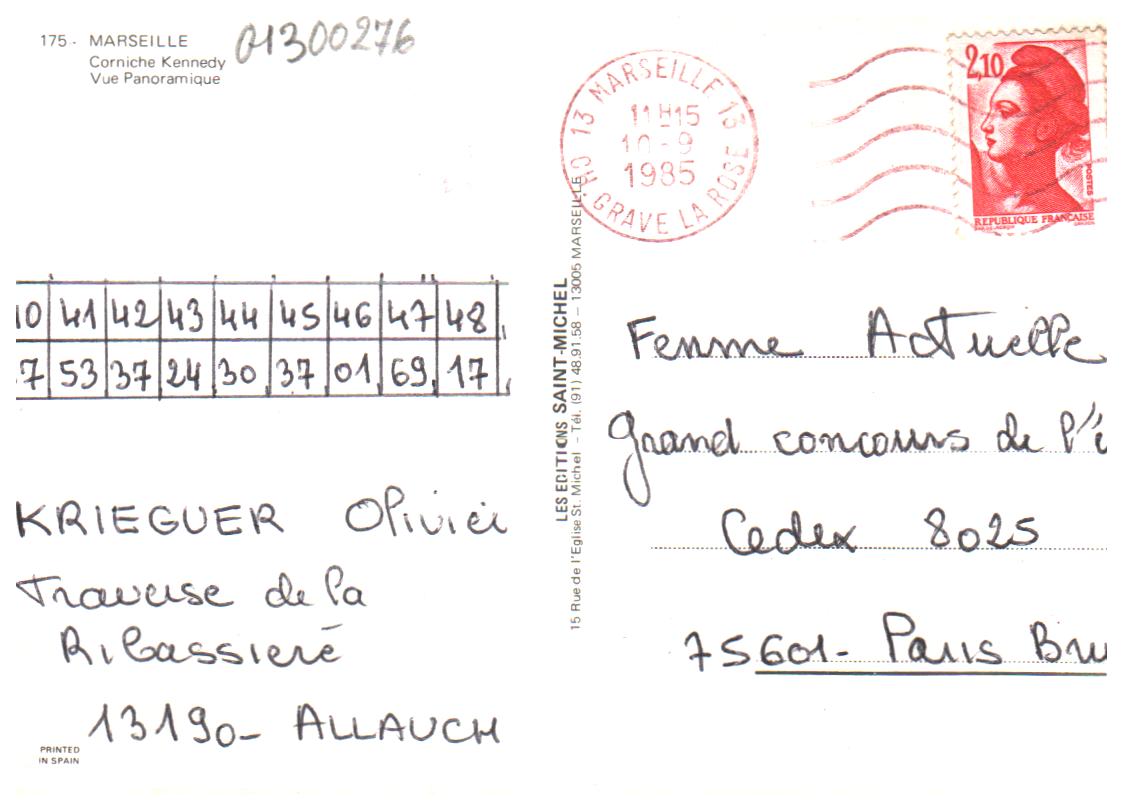 175 - MARSEILLE
Corniche Kennedy
Vue Panoramique
01300276
13 MARSEILLE 13
11H15
10-9
1985
CH. GRAVE LA ROSE
2,10
POSTES
REPUBLIQUE FRANÇAISE
41 42 43 44 45 46 47 48
53 37 24 30 37 01 69 17
KRIEGUER Olivier
Traverse de la
Ribassieré
13190- ALLAUCH
PRINTED
IN SPAIN
LES EDITIONS SAINT-MICHEL
15 Rue de l'Eglise St. Michel - Tél. (91) 48.91.58 - 13005 MARSEILLE
Femme Actuelle
Grand concours de l'é
Cedex 8025
75601- Paris Bru